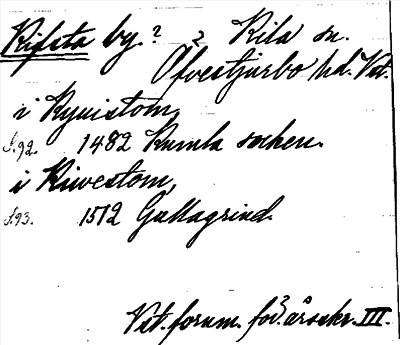 Rifsta by.? 2 Kila sn.
Öfvertjurbo hd. Vst.
i Ryuistom,
S.92. 1482 Kumla socken.
i Riwestom,
S.93. 1512 Gullagrind.
Vst. fornm. för. årsskr. III.